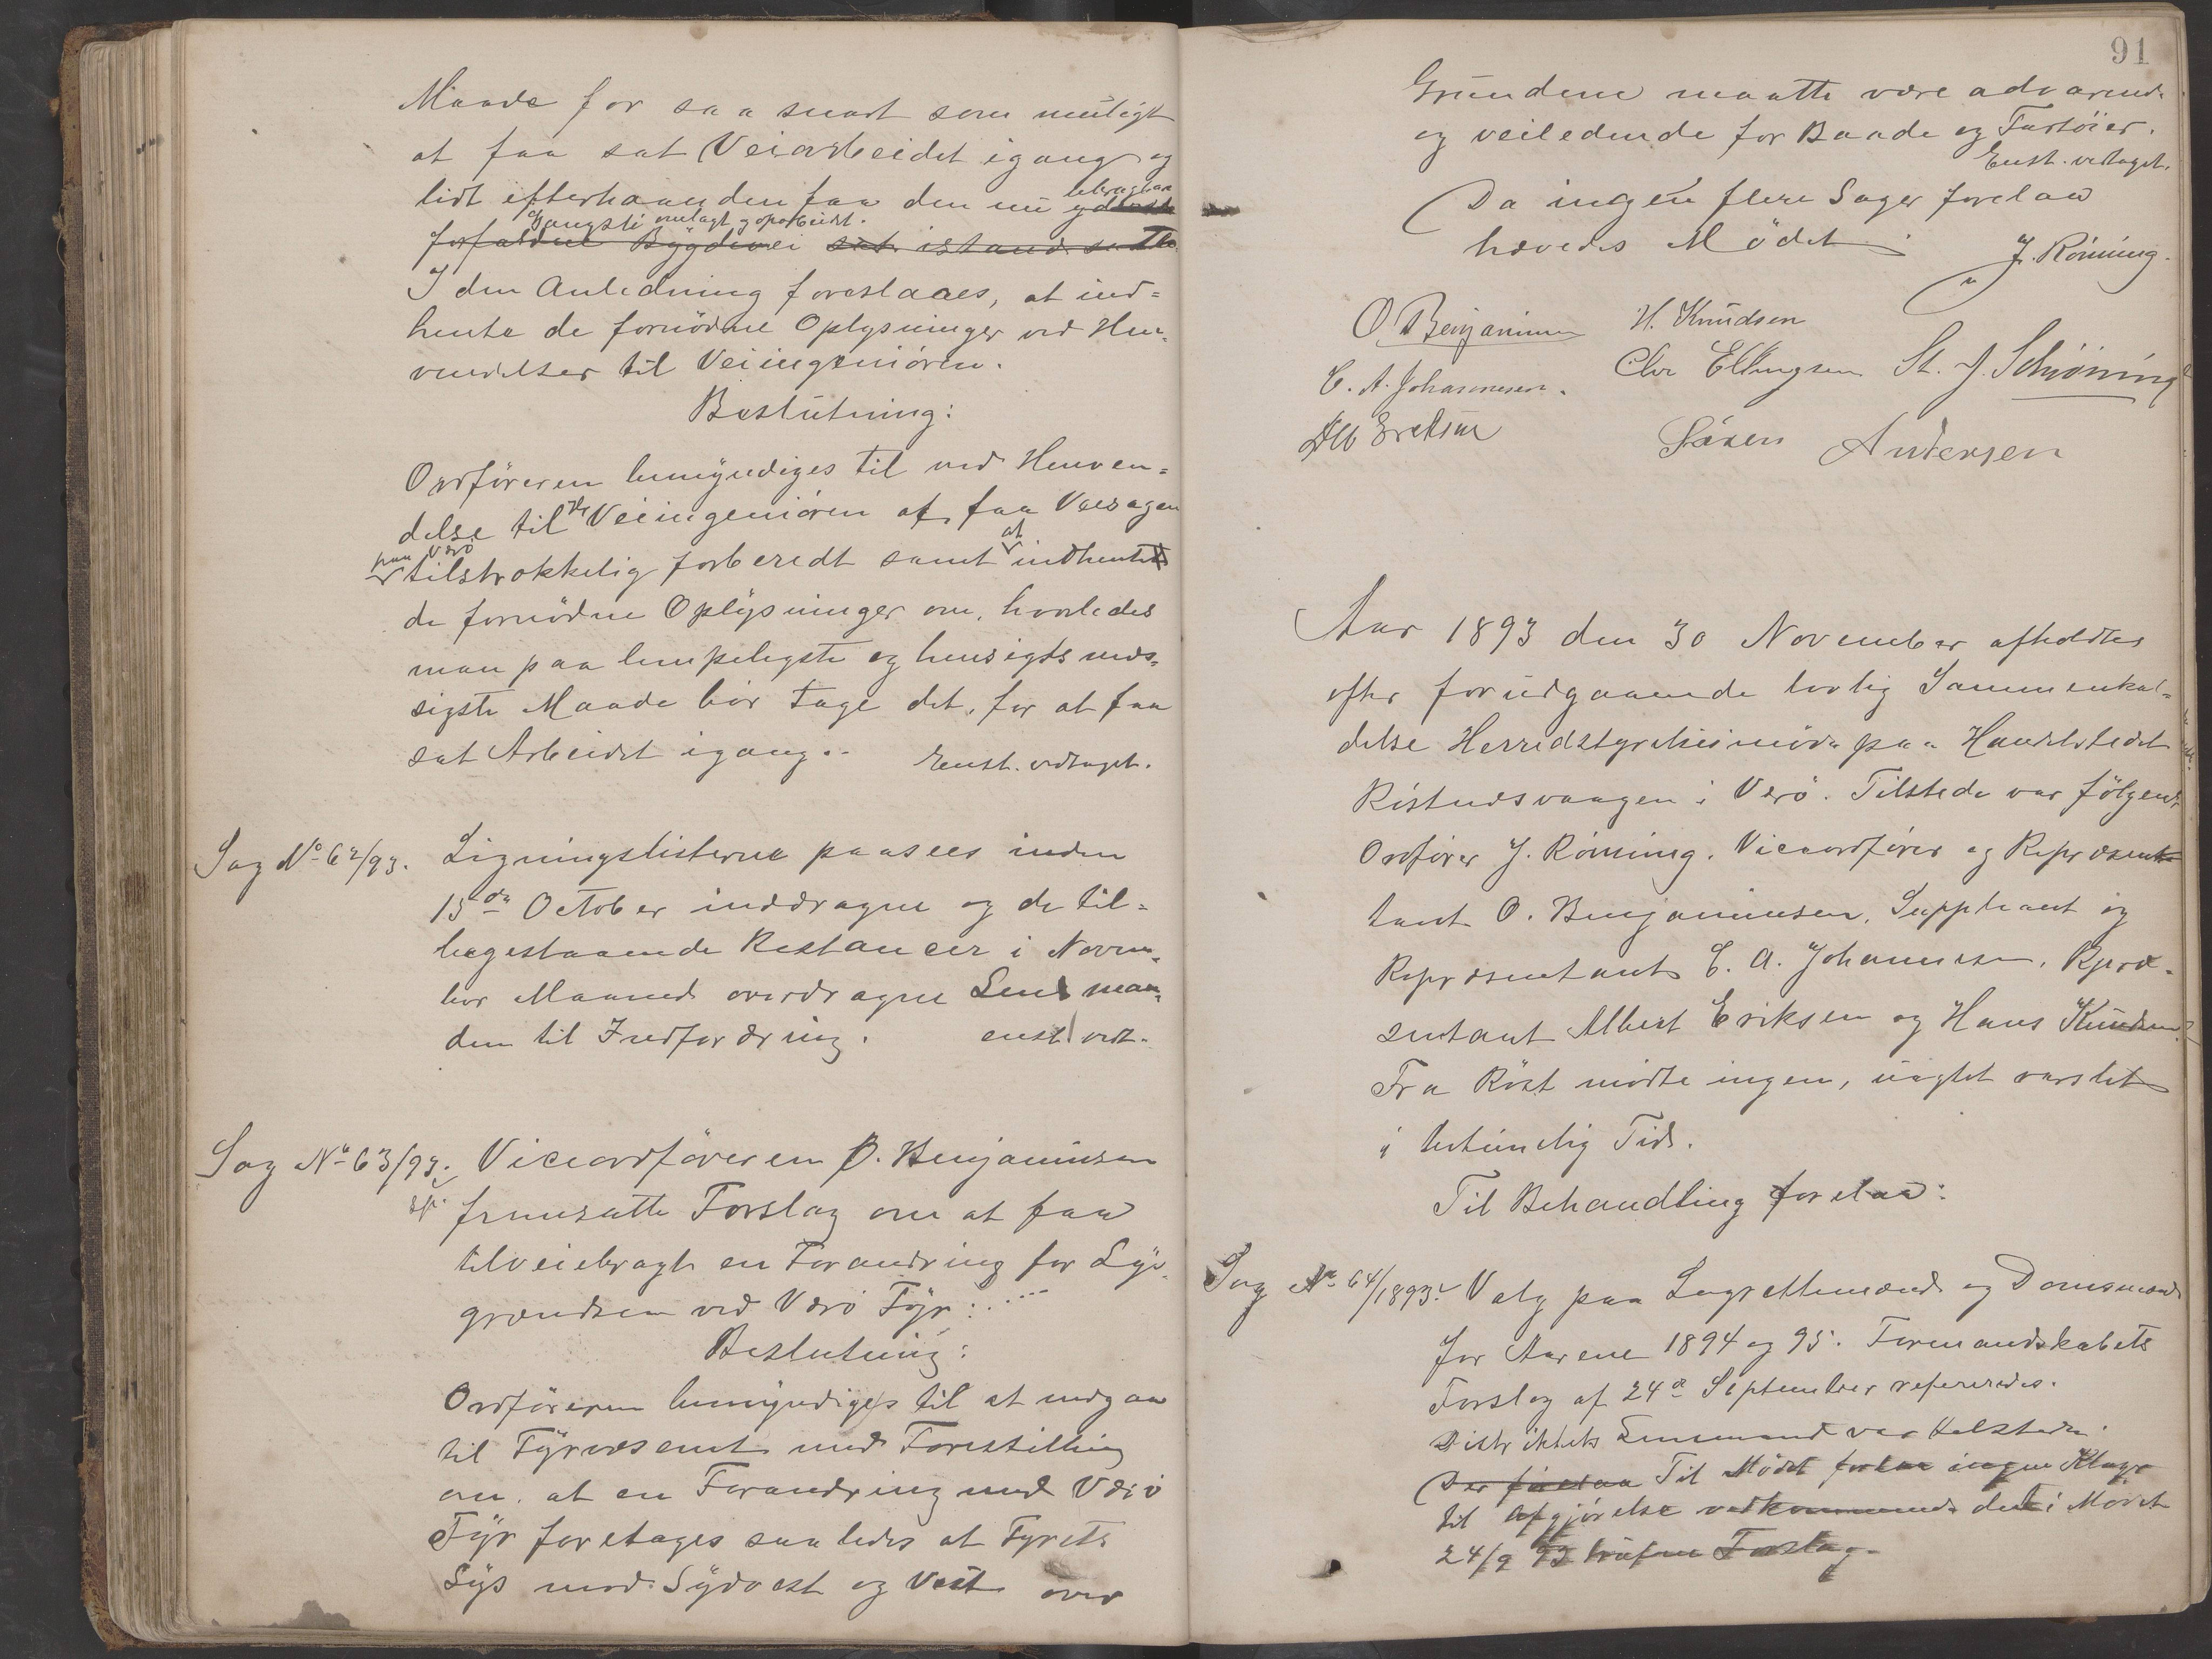 Maade for saa snart som muligt
at faa sat Veiarbeidet igang og
lidt efterhaanden faa den nu
Gangsti omlagt og oparbeidet.
forfaldne Bygdevei sat istandsatte
I den Anledning foreslaaes, at ind-
hente de fornödne Oplysninger ved Hen-
vendelser til Veiingeniören.
Beslutning:
Ordföreren bemyndiges til ved Henven-
delse til Hr Veiingeniören at faa Veisagen
paa Værö
tilstrækkelig forberedt samt at indhente
de fornödne Oplysninger om, hvorledes
man paa lempeligste og hensigtsmæs-
sigste Maade bör tage det, for at faa
sat Arbeidet igang.. Enst. vedtaget.
Sag No 62/93. Ligningslisterne paasees inden
15de October inddragne og de til-
bagestaaende Restancer i Novem-
ber Maaned overdragne Lensman-
den til Indfordring. enst. vedt.
Sag No 63/93. Viceordföreren O. Benjaminsen
fremsatte Forslag om at faa
tilveiebragt en Forandring for Lys-
grændsen ved Værö Fyr:....
Beslutning:
Ordföreren bemyndiges til at indgaa
til Fyrvæsenet med Forestilling
om, at en Forandring med Værö
Fyr foretages saaledes at Fyrets
Lys mod Sydvest og Vest over
91
Grundene maatte være advarende
og veiledende for Baade og Fartöier.
Enst. vedtaget.
Da ingen flere Sager forelaa
hævedes Mödet.
J. Rönning.
O Benjaminsen H. Knudsen
C. A. Johannesen. Chr Ellingsen St. J. Schiöning
Alb Eriksen Sören Andersen
Aar 1893 den 30 November afholdtes
efter forudgaaende lovlig Sammenkal-
delse Herredstyrelsesmöde paa Handelstedet
Röstnæsvaagen i Værö. Tilstede var fölgende
Ordförer J. Rönning. Viceordförer og Repræsen-
tant O. Benjaminsen, Suppleant og
Repræsentant C. A. Johannesen, Repræ-
sentant Albert Eriksen og Hans Knudsen.
Fra Röst mödte ingen, uagtet varslet
i betimelig Tid.
Til Behandling forelaa:
Sag No 64/1893. Valg paa Lagrettemænd og Domsmænd
for Aarene 1894 og 95. Formandskabets
Forslag af 24de September refereredes.
Distriktets Lensmand var tilstede.
Der forelaa Til Mödet forlaa ingen Klage
til Afgjörelse vedkommende det i Mödet
24/9 93 trufne Forslag.